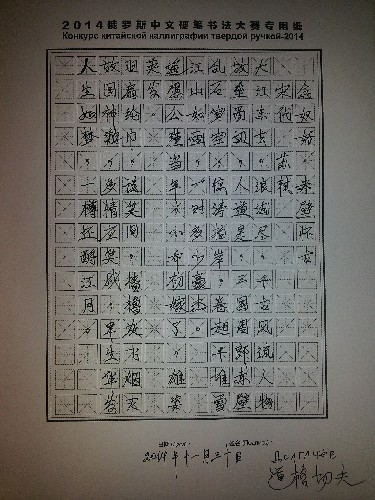 2014俄罗斯中文硬笔书法大赛专用纸
Конкурс китайской каллиграфии твердой ручкой-2014
念奴娇 赤壁怀古
宋代 苏轼
大江东去，浪淘尽，千古风流人物
故垒西边，人道是：三国周郎赤壁
乱石穿空，惊涛拍岸，卷起千堆雪
江山如画，一时多少豪杰。
遥想公瑾当年，小乔初嫁了，雄姿
英发。
羽扇纶巾，谈笑间，樯橹灰飞烟灭
故国神游，多情应笑我，早生华发
人生如梦，一樽还酹江月。
2014年十一月三十日
道格切夫